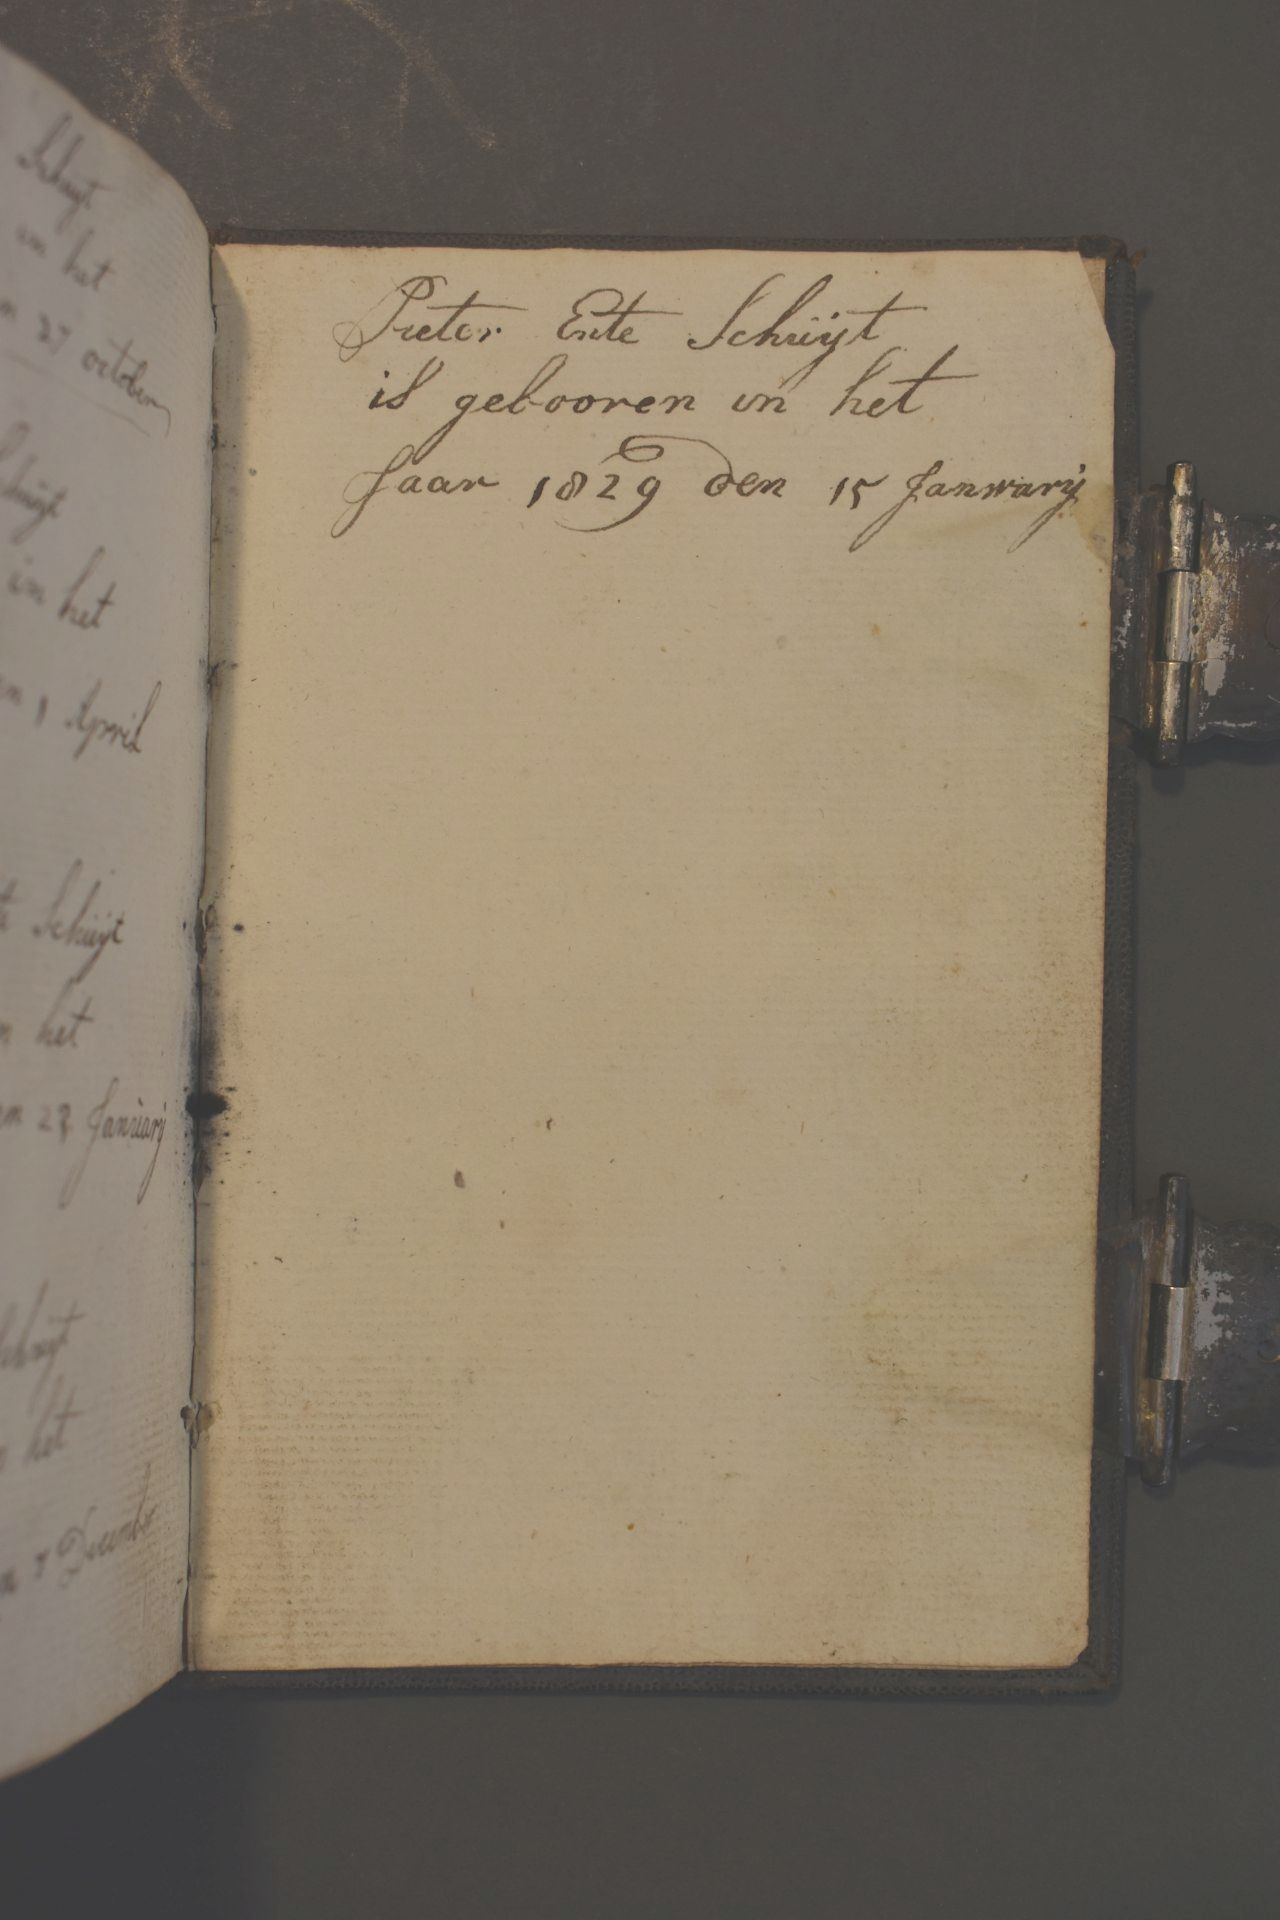 Schuyt
in het
27 october
Schuyt
in het
1 April
Schuyt
het
Januarij
Schuyt
het
Decembr
Pieter Ente Schuyt
is gebooren in het
Jaar 1829 den 15 Janwarij